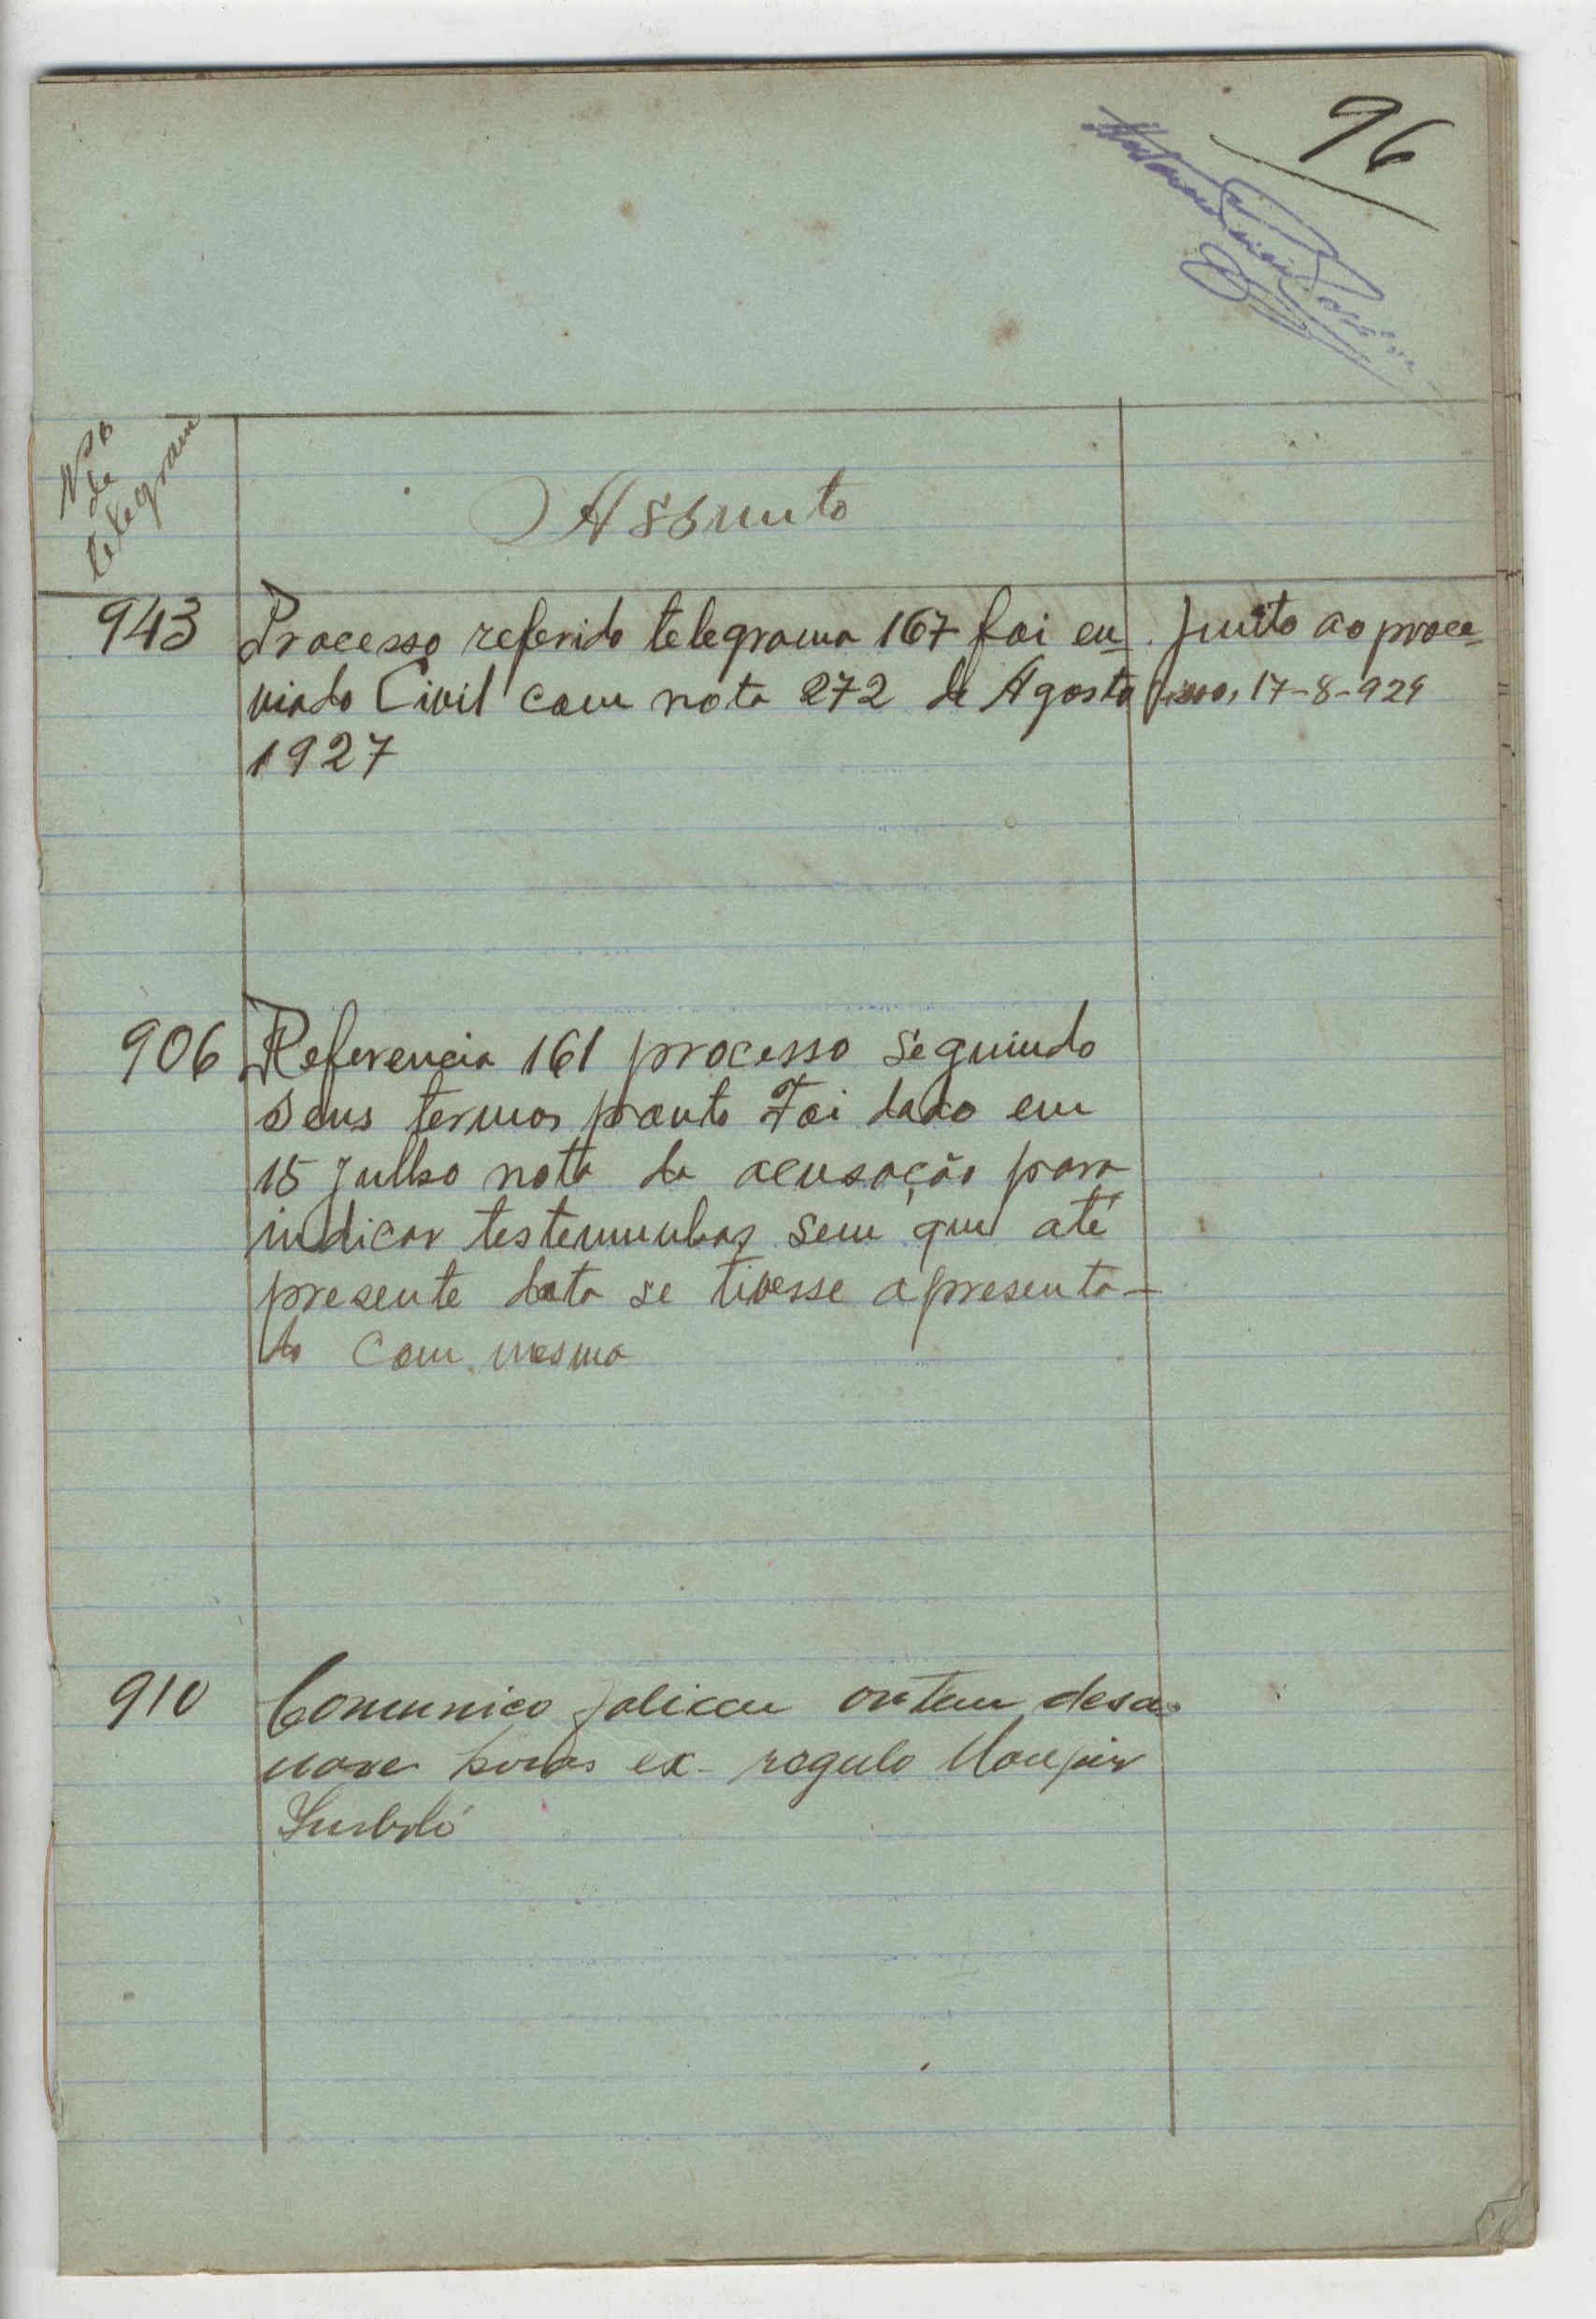 96
Nº
de
telegram
Assunto
943 Processo referido telegrama 167 foi en- Junto ao proce-
viado Civil com nota 272 de Agosto sso, 17-8-929
1927
906 Referencia 161 processo seguindo
seus termos ponto Foi dado em
15 Julho nota da acusação para
indicar testemunhas sem que até
presente data se tivesse apresenta-
do com mesma
910 Comunico faliceu ontem desa-
nove horas ex-regulo